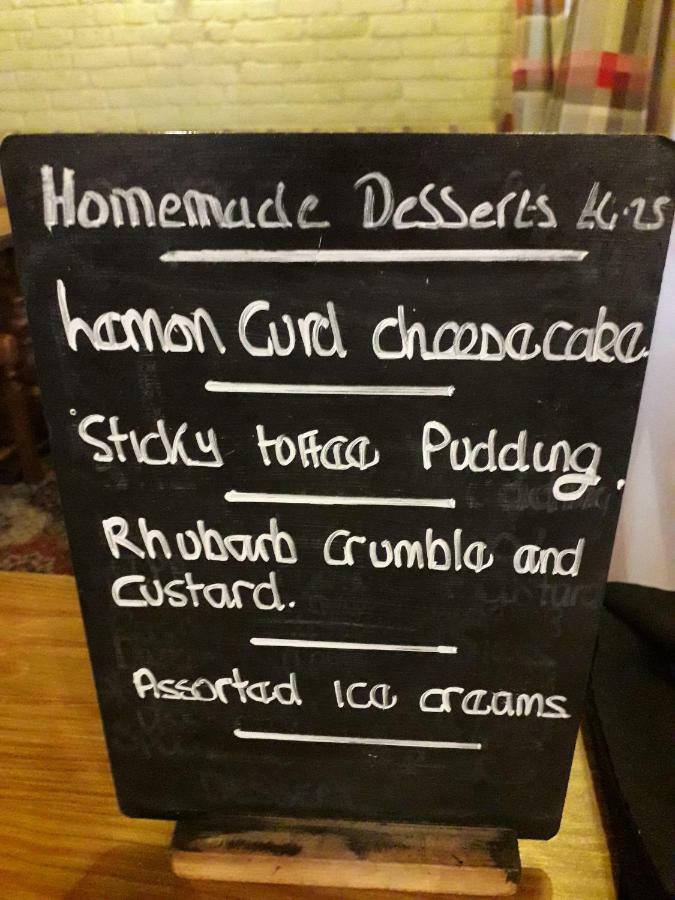 Homemade Desserts £6.25
Lemon Curd cheesecake
Sticky toffee Pudding.
Rhubarb crumble and
custard.
Assorted ice creams